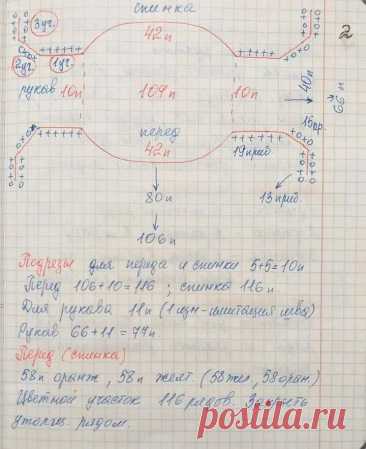 спинка
2
3уг.
42п
2уг.
1уг.
рукав 10п
109п
10п
40п
66п
перед
42п
19приб
15пр.
80п
13приб.
106п
Подрезы для переда и спинки 5+5=10п
Перед 106+10=116; спинка 116п
Для рукава 11п (1изн-имитация шва)
Рукав 66+11=77п
Перед (спинка)
58п оранж, 58п желт. (58жел, 58оран)
Цветной участок 116 рядов. Закрыть
утолщ. рядом.
postila.ru